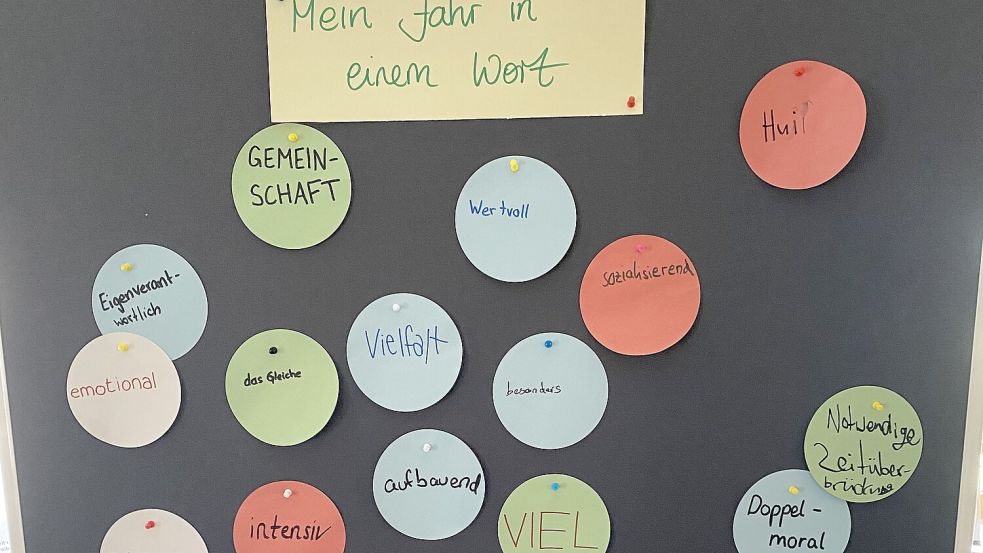 Mein Jahr in
einem Wort
Hui!
GEMEIN-
SCHAFT
Wertvoll
sozialisierend
Eigenverant-
wortlich
Vielfalt
emotional
das Gleiche
besonders
Notwendige
Zeitüber-
brückung
aufbauend
intensiv
VIEL
Doppel-
moral